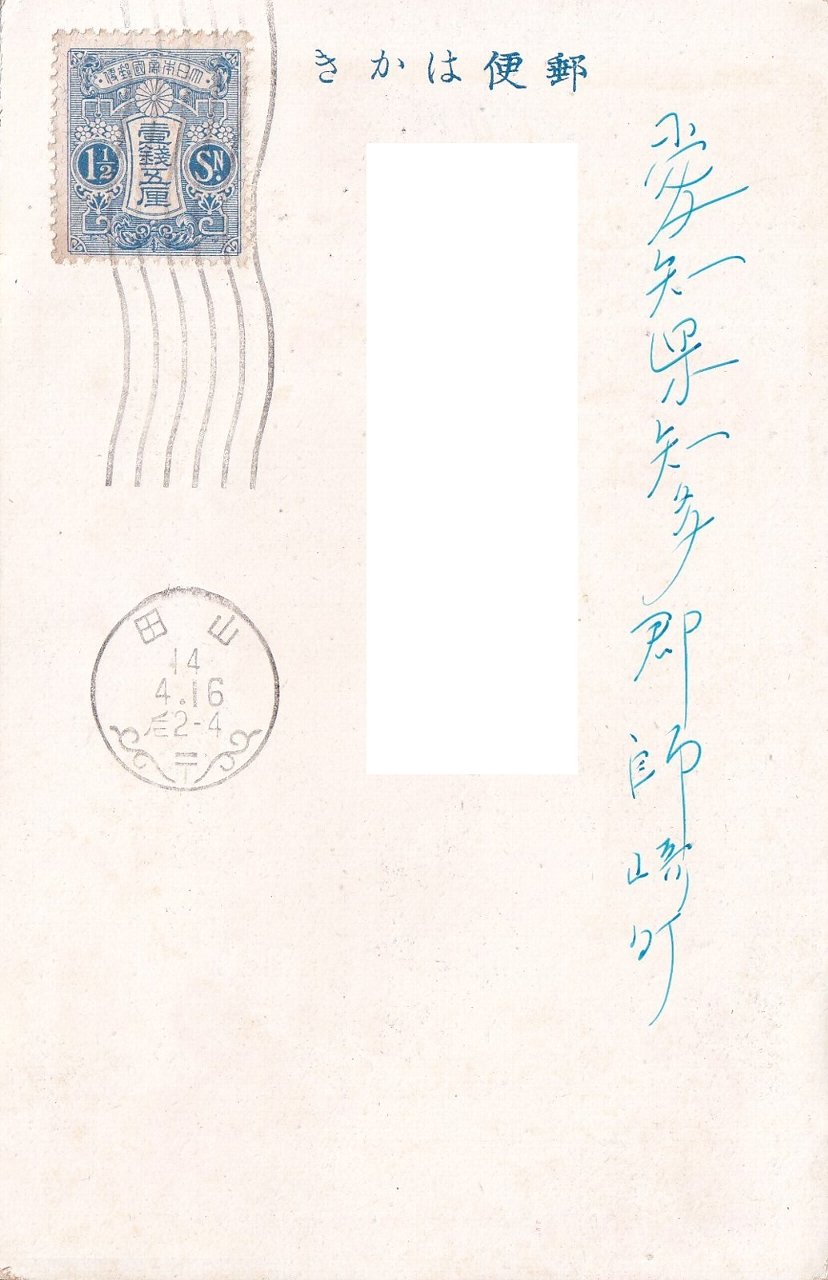 郵便はかき
愛知県知多郡師崎町
大日本帝國郵便
壹錢五厘
1½ SN.
山田
14
4.16
后2-4
〒